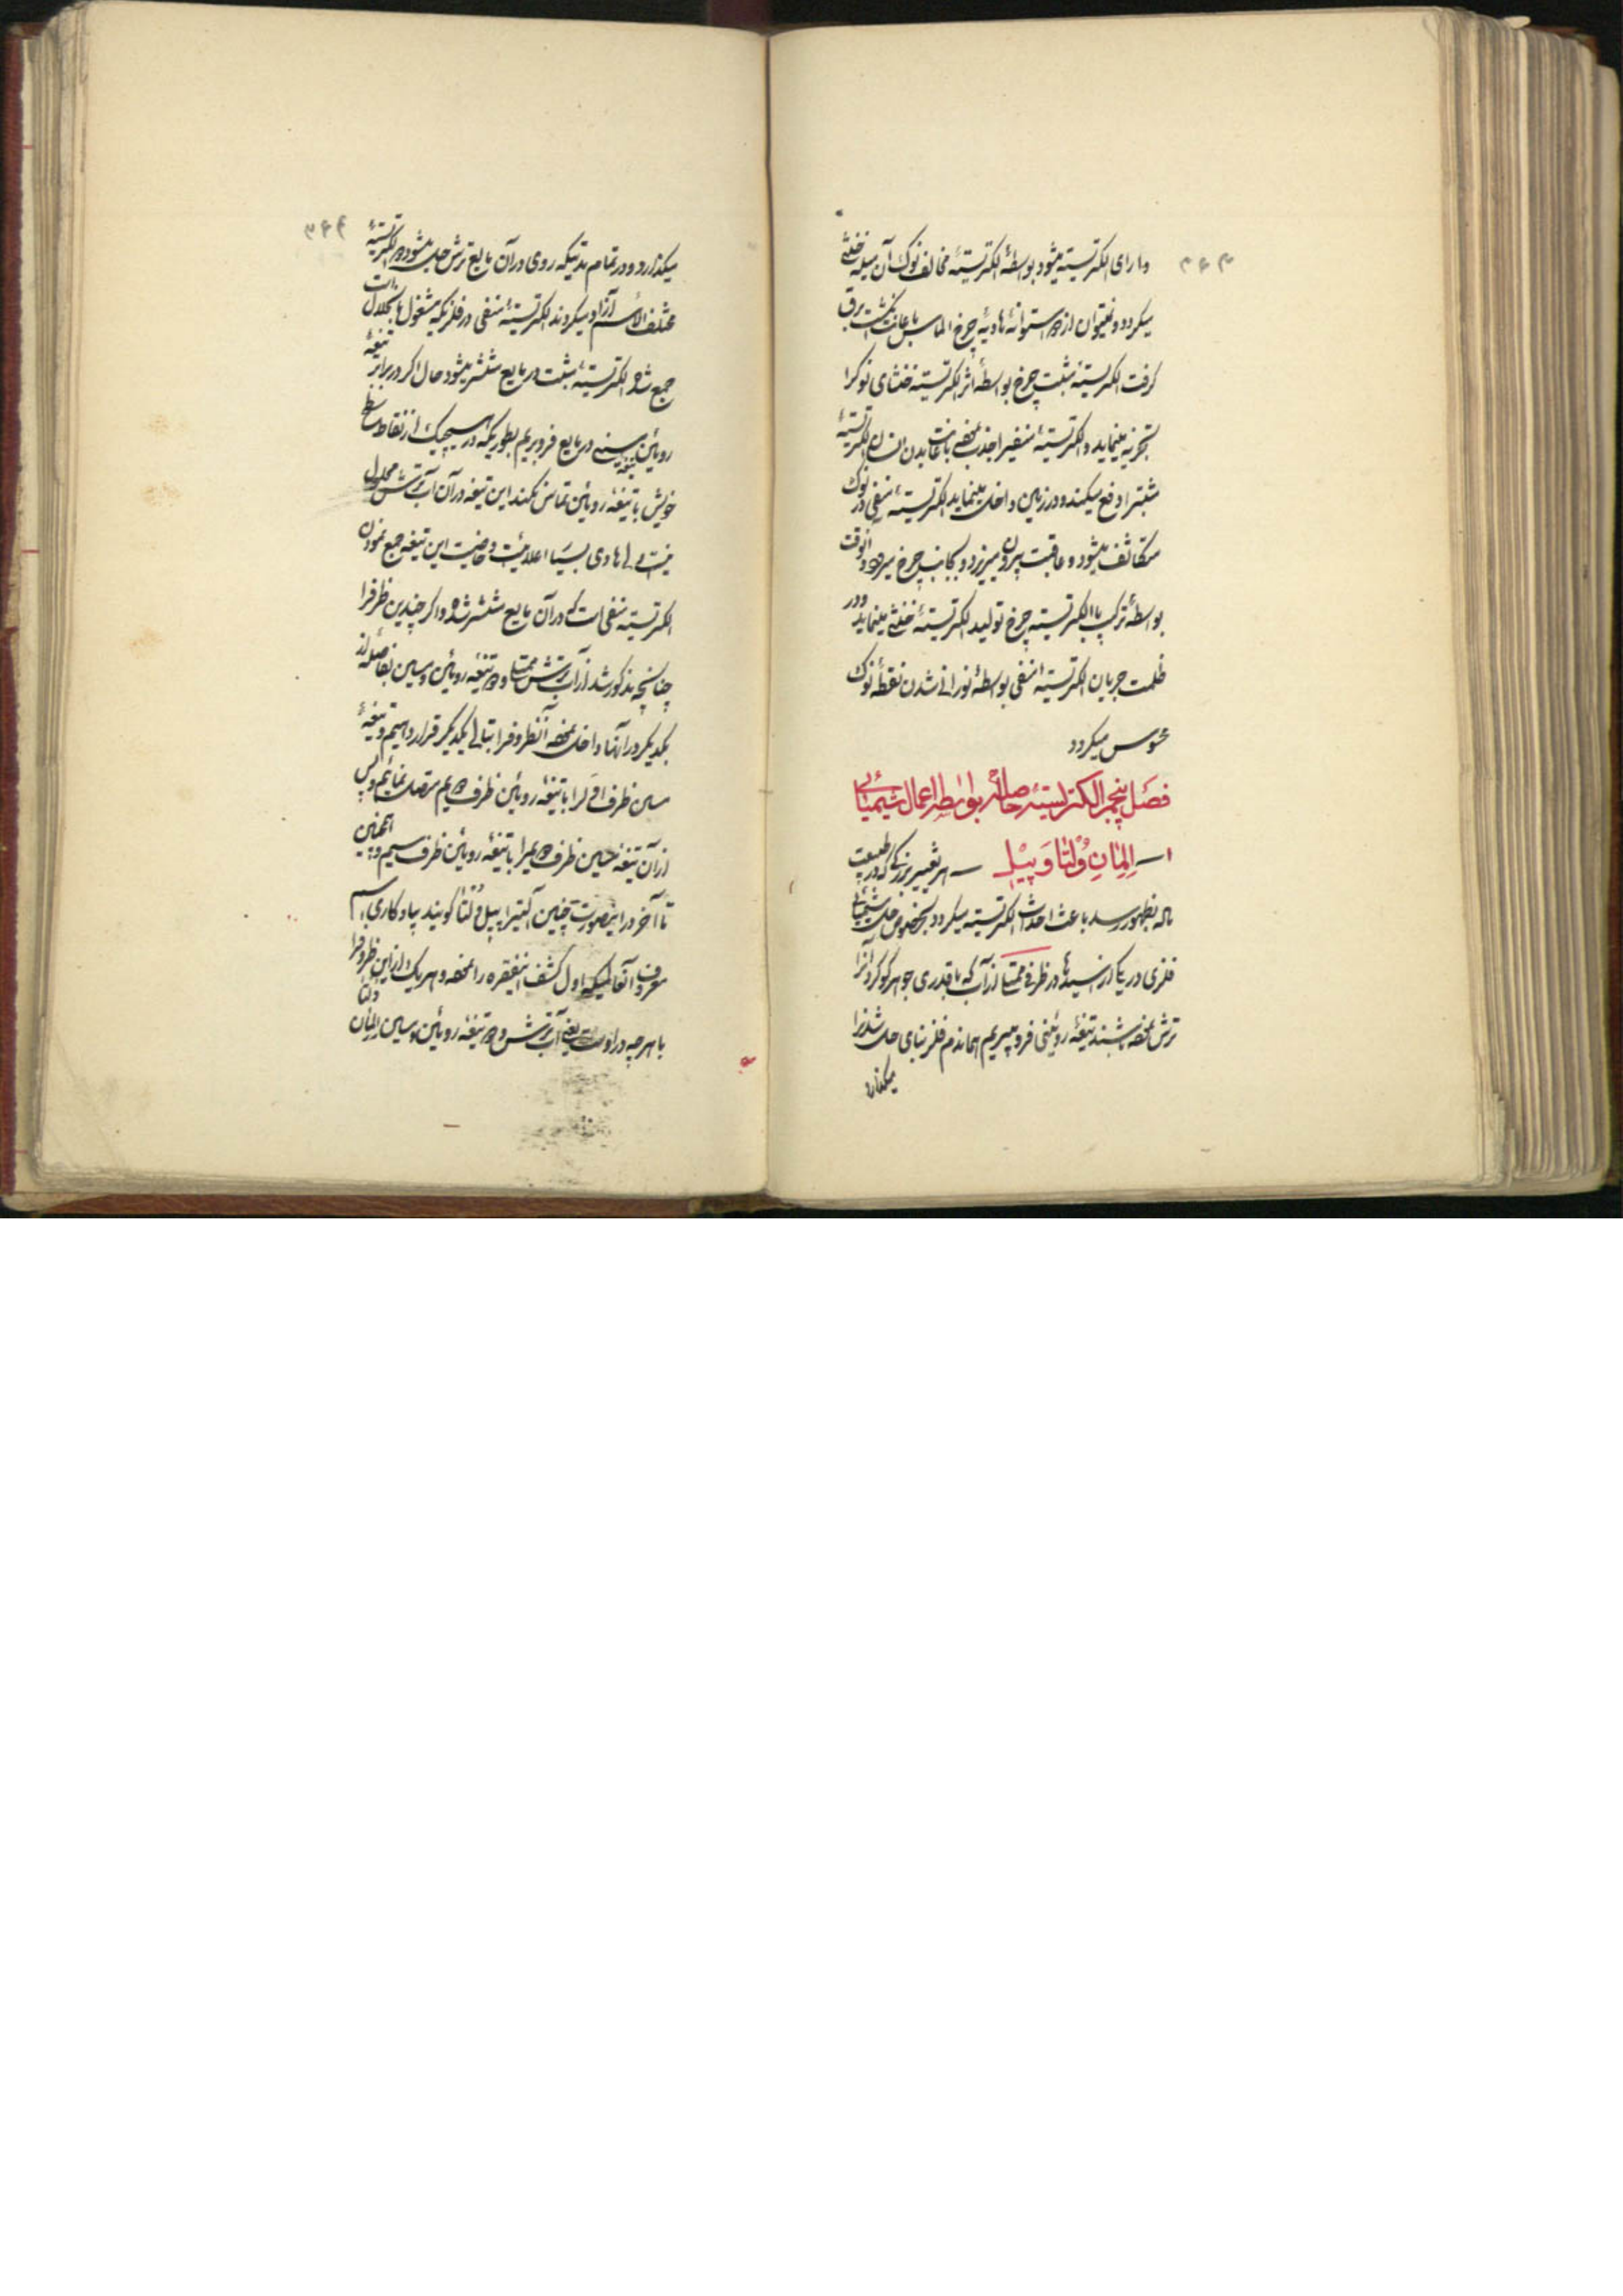 ۳۶۳
دارای الکتریسیته میشود بواسطهٔ الکتریسیتهٔ مخالف نوک آن میله خنثی
میگردد و نمیتوان از استوانهٔ هادیهٔ چرخ الماس با انگشت برق
گرفت الکتریسیته مثبت چرخ بواسطهٔ اثر الکتریسیته خنثای نوک را
تجزیه مینماید و الکتریسیتهٔ منفیرا جذب الکتریسیتهٔ
مثبترا دفع میکند و در زمین داخل مینماید الکتریسیتهٔ منفی در نوک
متکاثف میشود و عاقبت بیرون میریزد و بجانب چرخ میرود و آنوقت
بواسطهٔ ترکیب با الکتریسیته چرخ تولید الکتریسیتهٔ خنثی مینماید و در
ظلمت جریان الکتریسیتهٔ منفی بواسطهٔ نورانی شدن نقطهٔ نوک
محسوس میگردد
فصل پنجم الکتریسیتهٔ حاصله بواسطه اعمال شیمیائی
۱ ــ اِلِمانِ وُلتا وَ پیْل ــ هر تغییر بزرگی که در طبیعت
ماده بظهور رسد باعث احداث الکتریسیته میگردد بخصوص حل شیمیائی
فلزی در یکی از اسیدها در ظرفی ممتلی از آب که با قدری جوهر گوگرد آنرا
ترش نموده باشند تیغهٔ روئینی فرو میبریم هماندم فلز بنای حل شدنرا
میگذارد
۳۶۴
میگذارد و در تمام مدتیکه روی در آن مایع ترش حل میشود دو الکتریسیتهٔ
مختلف الاسم آزاد میگردند الکتریسیتهٔ منفی در فلزیکه مشغول بانحلال است
جمع شده الکتریسیتهٔ مثبت در مایع منتشر میشود حال اگر در برابر تیغهٔ
روئین تیغه مسینی در مایع فرو بریم بطوریکه در هیچیک از نقاط سطح
خویش با تیغهٔ روئین تماس نکند این تیغه در آن آب ترش محلول
نیست ولی هادی بسیار اعلائیست و خاصیت این تیغه جمع نمودن
الکتریسیته منفی است که در آن مایع منتشر شده و اگر چندین ظرفرا
چنانچه مذکور شد از آب ترش ممتلی و دو تیغهٔ روئین و مسین بفاصله از
یکدیگر در آنها داخل نموده آن ظروفرا بتالی یکدیگر قرار دهیم و تیغهٔ
مسین ظرف اولرا با تیغهٔ روئین ظرف دویم متصل نمائیم و پس
از آن تیغهٔ مسین ظرف دویمرا با تیغهٔ روئین ظرف سیم و همچنین
تا آخر در اینصورت چنین آلتیرا پیل وُلتا گویند بیادگاری اسم
معروف آنعالمیکه اول کشف اینفقره را نموده و هر یک از این ظروفرا
با هر چه در اوست یعنی آب ترش و دو تیغهٔ روئین و مسین اِلِمان وُلتا